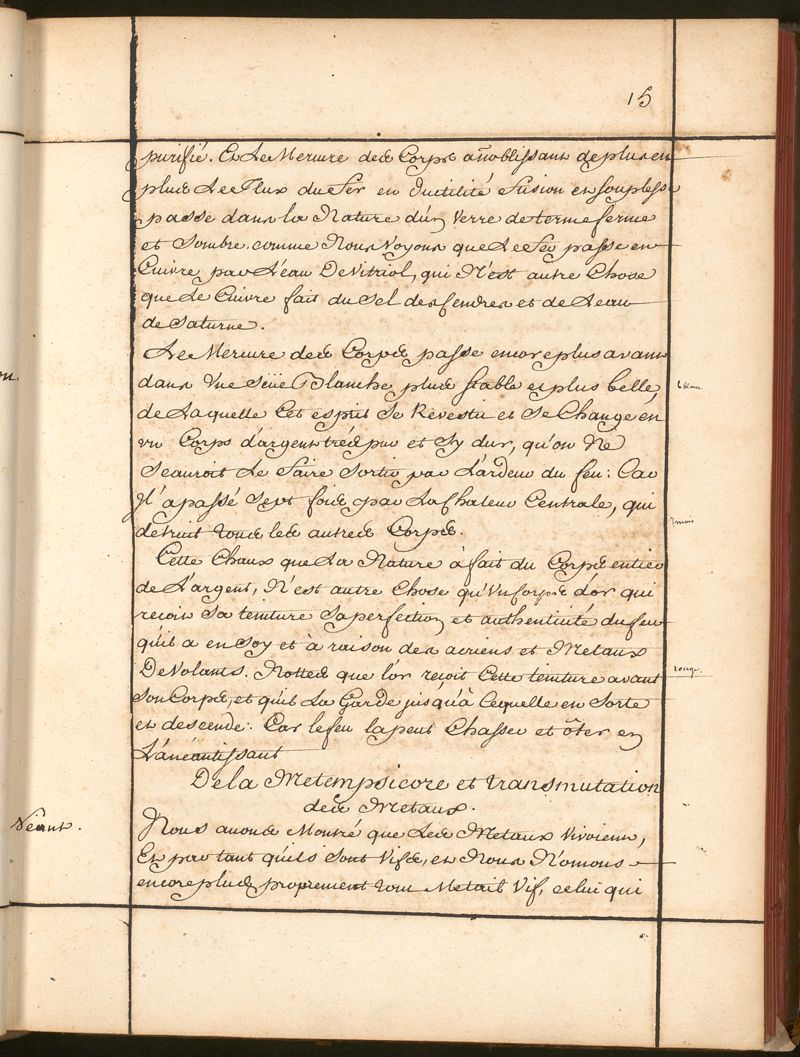 15
purifié. Et Le Mercure deds Corps añoblissant de plus en
plus Le Flux du Fer en Ductilité fusion et souplesse
passe dans la Nature d'un Verre de terme ferme
et Sombre. comme Nous Voyons que Le Fer passe en
Cuivre par L'eau De Vitriol, qui N'est autre Chose
que Le Cuivre fait du Sel des Cendres et de L'eau
de Saturne.
Le Mercure des Corps passe encore plus avant
dans Une Blanche, plus stable et plus belle,
de Laquelle Cet esprit Se Revestit et Se Change en
un Corps d'argent trés pur et Sy dur, qu'on Ne
Scauroit Le Faire Sortir par L'ardeur du feu: Car
Jl'a passé Sept fois par La Chaleur Centrale, qui
détruit tous les autres Corps.
Cette Chaux que La Nature à fait du Corps entier
de L'argent, N'est autre Chose qu'Un Corps d'or qui
recoit Sa teinture Sa perfection et authenticité du feu
qu'il a en Soy et à raison des aeriens et Metaux
De Volants. Nottes que l'or reçoit Cette teinture avant
Son Corps, et qu'il La Garde jusqu'à Ce quelle en Sorte
et descende: Car le feu la peut Chasser et ôter en
L'anéantissant
De la Metempsicore et transmutation
des Metaux.
Néant.
Nous avons Montré que Les Metaux Vivoient,
Et par tant qu'ils Sont Vifs, et Nous N'omons
encore plus proprement tout Metail Vif, celui qui
rouge.